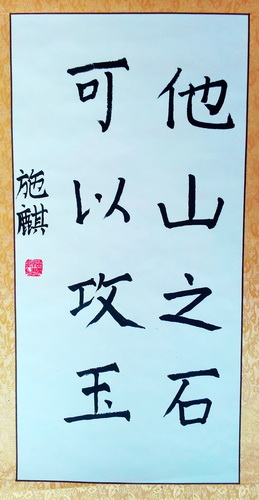 他山之石
可以攻玉
施麒